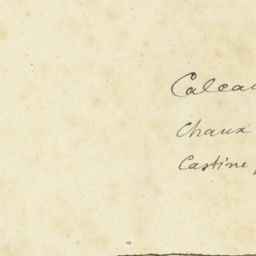 Calca
Chaux
Castine